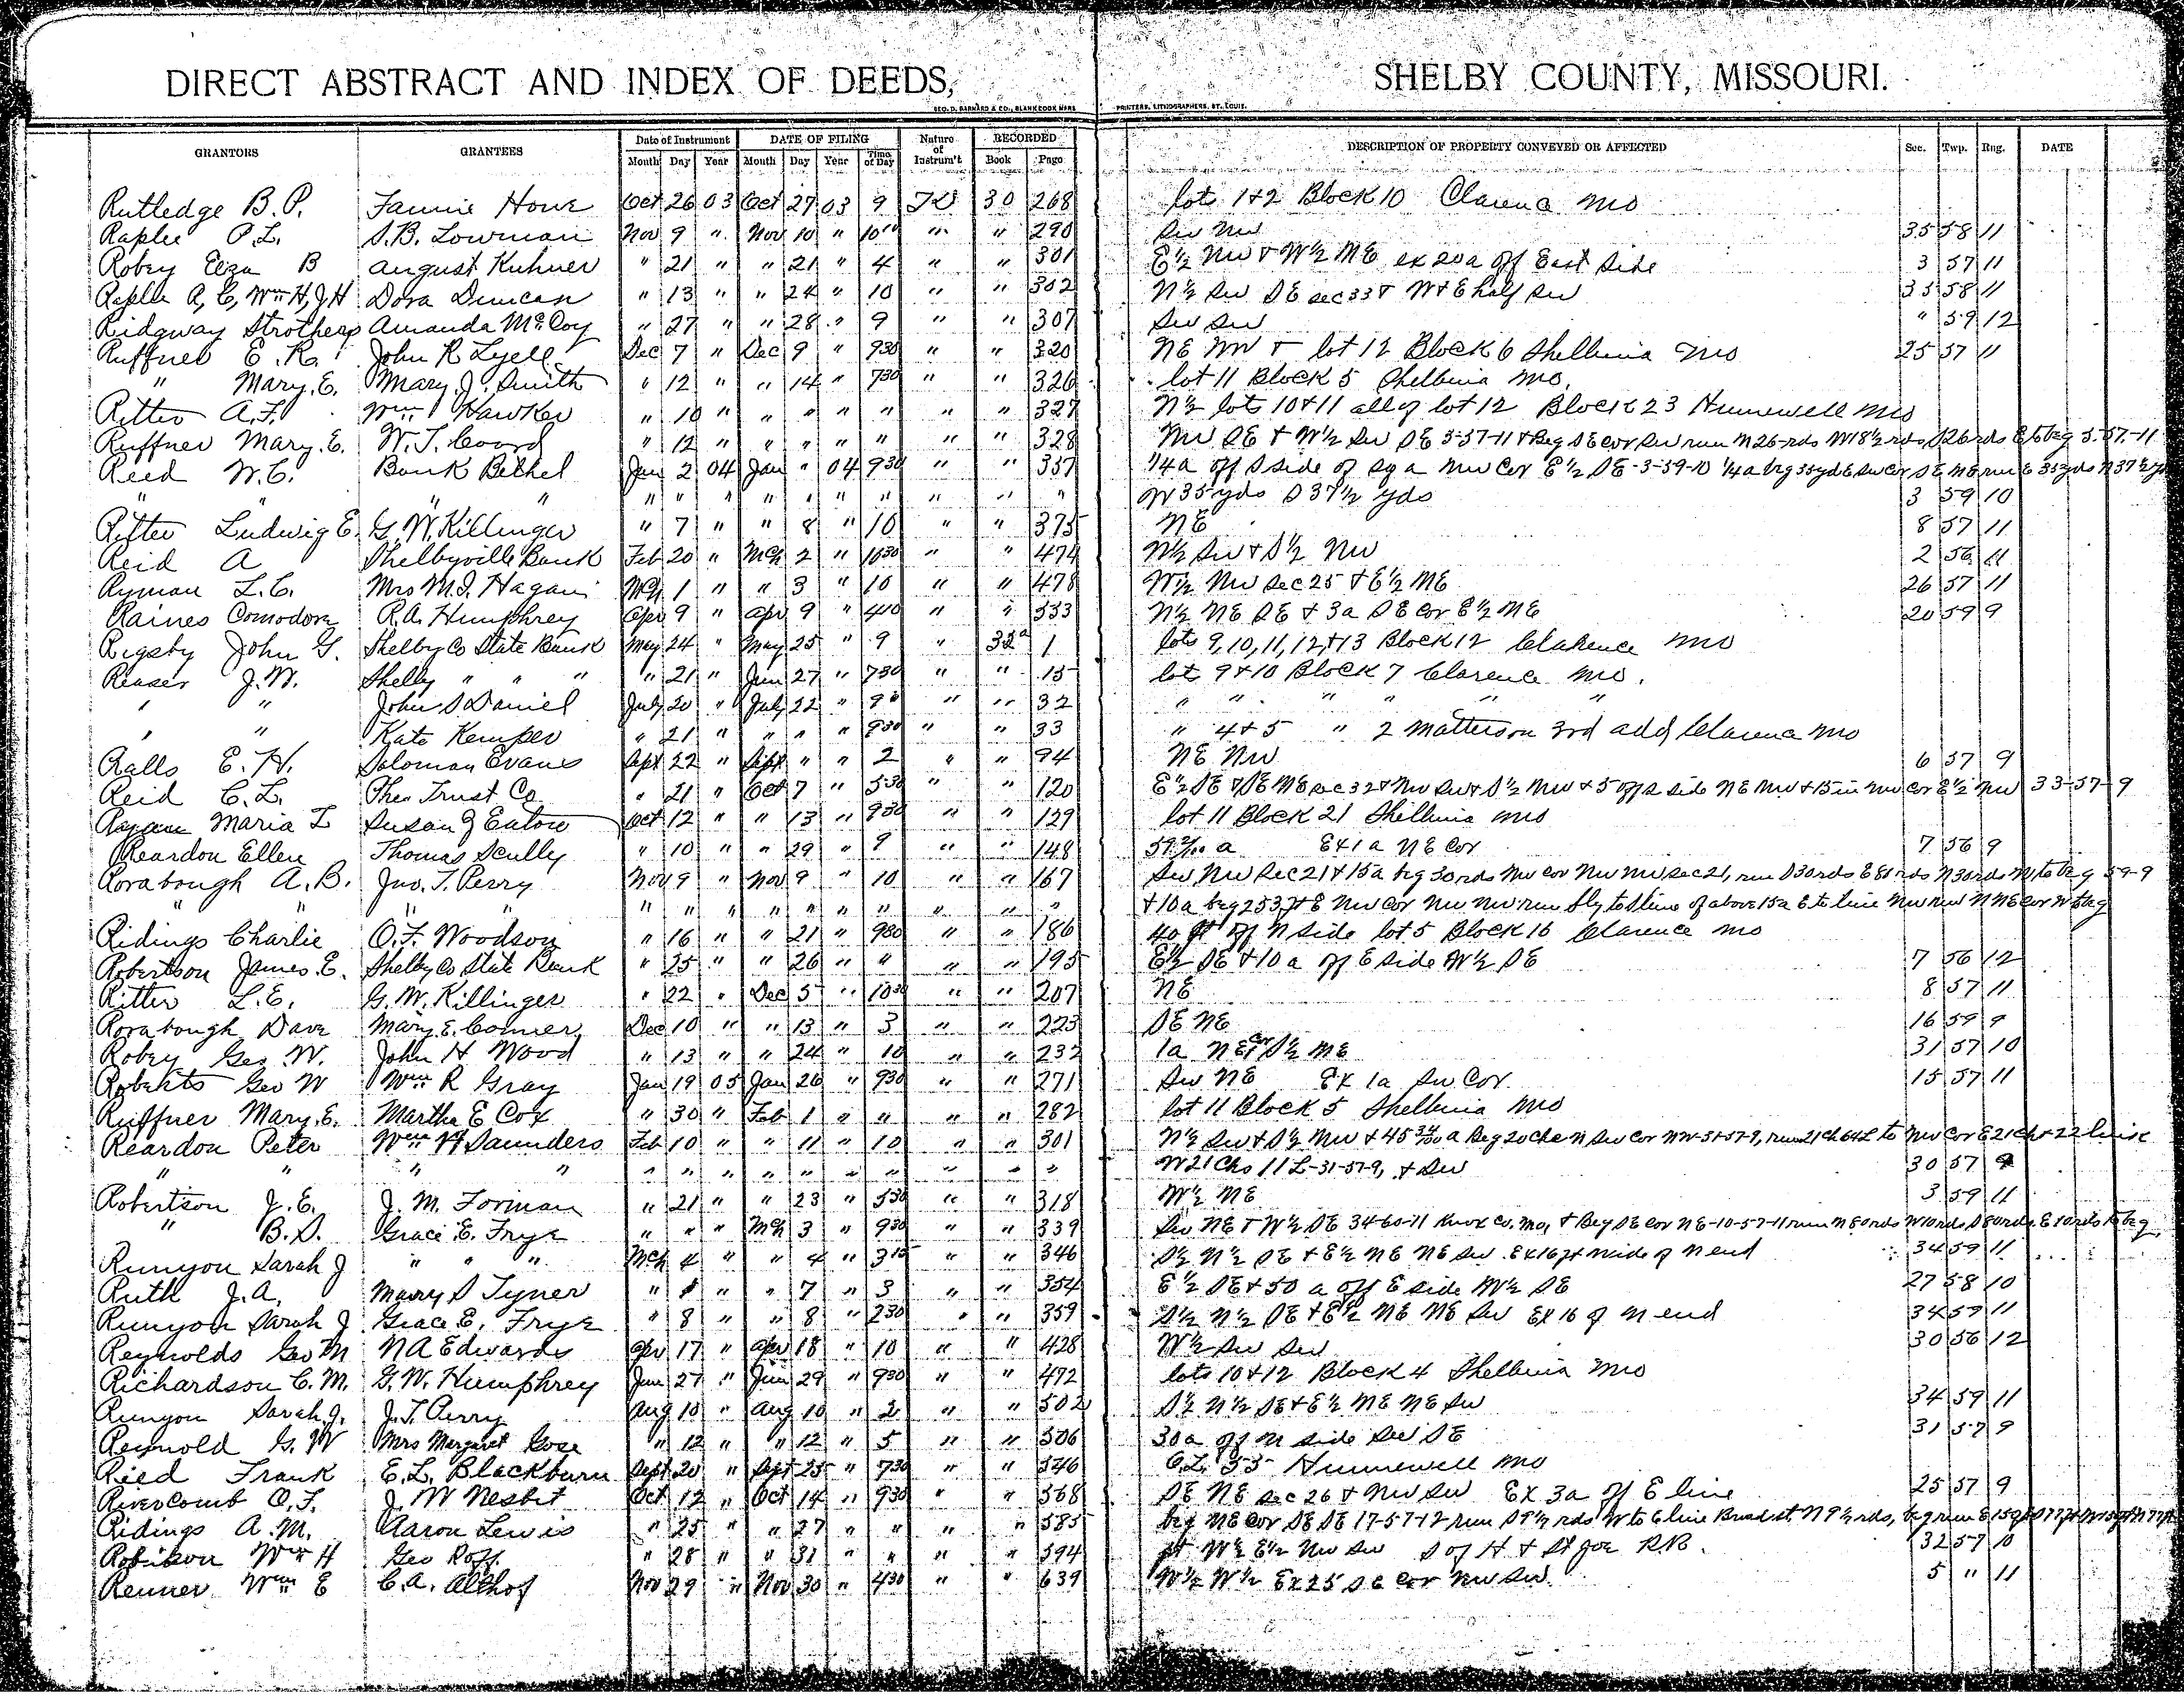 DIRECT ABSTRACT AND INDEX OF DEEDS, SHELBY COUNTY, MISSOURI.
GEO. D. BARNARD & CO., BLANK BOOK MKRS PRINTERS, LITHOGRAPHERS, ST. LOUIS.
GRANTORS GRANTEES Date of Instrument DATE OF FILING Nature of Instrum't RECORDED DESCRIPTION OF PROPERTY CONVEYED OR AFFECTED Sec. Twp. Rng. DATE
Month Day Year Month Day Year Time of Day Book Page
Rutledge B.P. Fannie Howe Oct 26 03 Oct 27 03 9 TD 30 268 lots 1+2 Block 10 Clarence Mo
Raplee P.L. S.B. Lowman Nov 9 " Nov 10 " 10 " " 290 SW NW 35 58 11
Robey Eliza B August Kuhner " 21 " " 21 " 4 " " 301 E½ NW + W½ NE ex 20a off East Side 3 57 11
Raplee A, C, Wm H, J H Dora Duncan " 13 " " 24 " 10 " " 302 N½ SW SE sec 33 + W + E half SW 35 58 11
Ridgway Strothers Amanda McCoy " 27 " " 28 " 9 " " 307 SW SW " 59 12
Ruffner E.R. John R Lyell Dec 7 " Dec 9 " 930 " " 320 NE NW + lot 12 Block 6 Shelbina Mo 25 57 11
" Mary E. Mary J. Smith " 12 " " 14 " 730 " " 326 lot 11 Block 5 Shelbina Mo.
Ritter A.F. Wm Hawker " 10 " " " " " " " 327 N½ lots 10+11 all of lot 12 Block 23 Hunnewell Mo
Ruffner Mary E. W.T. Coord " 12 " " " " " " " 328 NW SE + W½ SW SE 3-57-11 + Beg SE cor SW run N 26 rds W 18½ rds S 26 rds E to beg 3-57-11
Reed W.C. Bank Bethel Jan 2 04 Jan " 04 930 " " 357 ¼a off S side of sq a NW Cor E½ SE-3-59-10 ¼a beg 35 yd E SW Cor SE NE run E 35 yds N 37½ yds
" " " " " " " " " " " " " " W 35 yds S 37½ yds 3 59 10
Ritter Ludwig E. G.W. Killinger " 7 " " 8 " 10 " " 375 NE 8 57 11
Reid A Shelbyville Bank Feb 20 " Mch 2 " 1030 " " 474 N½ SW + S½ NW 2 56 11
Ryman L.C. Mrs M.J. Hagan Mch 1 " " 3 " 10 " " 478 W½ NW Sec 25 + E½ NE 26 57 11
Raines Comodore R.A. Humphrey Apr 9 " Apr 9 " 440 " " 553 N½ NE SE + 3a SE Cor E½ NE 20 59 9
Rigsby John G. Shelby Co State Bank May 24 " May 25 " 9 " 32a 1 lots 9, 10, 11, 12, +13 Block 12 Clarence Mo
Reaser J.W. Shelby " " " " 21 " Jun 27 " 730 " " 15 lot 9+10 Block 7 Clarence Mo.
" " John S Daniel July 20 " July 22 " 9 " " 32 " " " " " "
" " Kate Kemper " 21 " " " " 930 " " 33 " 4+5 " 2 Matterson 3rd add Clarence Mo
Ralls E.H. Soloman Evans Sept 22 " Sept " " 2 " " 94 NE NW 6 57 9
Reid C.L. Phee Trust Co " 21 " Oct 7 " 530 " " 120 E½ SE + SE NE sec 32 + NW SW + S½ NW + 5 off S side NE NW + 15 in NW Cor E½ NW 33-57-9
Maria L Susan J Eaton Oct 12 " " 13 " 930 " " 129 lot 11 Block 21 Shelbina Mo
Reardon Ellen Thomas Scully " 10 " " 29 " 9 " " 148 a Ex 1a NE Cor 7 56 9
Rorabough A.B. Jno. T. Perry Nov 9 " Nov 9 " 10 " " 167 SW NW Sec 21 + 15a beg 30 rds NW cor NW NW sec 21, run S 30 rds E 80 rds N 30 rds W to beg 59-9
" " " " " " " " " " " " " " +10a beg 253 ft E NW Cor NW NW run Sly to S line of above 15a E to line NW NW N NE Cor W to beg
Ridings Charlie O.F. Woodson " 16 " " 21 " 930 " " 186 40 ft off N side lot 5 Block 16 Clarence Mo
Robertson James E. Shelby Co State Bank " 25 " " 26 " " " " 195 E½ SE + 10a off E side W½ SE 7 56 12
Ritter L.E. G.W. Killinger " 22 " Dec 5 " 1030 " " 207 NE 8 57 11
Rorabough Dave Mary E. Comer Dec 10 " " 13 " 3 " " 223 SE NE 16 59 9
Robey Geo W. John H Wood " 13 " " 24 " 10 " " 232 1a NE Cor S½ NE 31 57 10
Roberts Geo W Wm R Gray Jan 19 05 Jan 26 " 930 " " 271 SW NE Ex 1a SW Cor. 15 57 11
Ruffner Mary E. Martha E Cox " 30 " Feb 1 " " " " 282 lot 11 Block 5 Shelbina Mo
Reardon Peter Wm H Saunders Feb 10 " " 11 " 10 " " 301 N½ SW + S½ NW + 45 34/100 a Beg 20 chs N SW Cor NW-31-57-9, run 21 Ch 64 L to NW Cor E 21 Ch + 22 links
" " " " " " " " " " " " " " W 21 Chs 11 L-31-57-9, + SW 30 57 9
Robertson J.E. J.M. Forman " 21 " " 23 " 530 " " 318 W½ NE 3 59 11
" B.D. Grace E. Frye " " " Mch 3 " 930 " " 339 SW NE + W½ SE 34-60-11 Knox Co, Mo, + Beg SE cor NE-10-57-11 run N 80 rds W 10 rds S 80 rds E 10 rds to beg
Runyon Sarah J " " " Mch 4 " " 4 " 315 " " 346 S½ N½ SE + E½ NE NE SW Ex 16 ft N side of N end 34 59 11
Ruth J.A. Mary S Tyner " " " 7 " 3 " " 354 E½ SE + 50 a off E side W½ SE 27 58 10
Runyon Sarah J Grace E. Frye " 8 " " 8 " 230 " " 359 S½ N½ SE + E½ NE NE SW Ex 16 of N end 34 59 11
Reynolds Geo M N A Edwards Apr 17 " Apr 18 " 10 " " 428 W½ SW SW 30 56 12
Richardson C.M. G.W. Humphrey Jun 27 " Jun 29 " 930 " " 472 lots 10+12 Block 4 Shelbina Mo
Runyon Sarah J. J.T. Perry Aug 10 " Aug 10 " 2 " " 502 S½ N½ SE + E½ NE NE SW 34 59 11
Reynold G.W Mrs Margaret Gose " 12 " " 12 " 5 " " 506 30a off N side SW SE 31 57 9
Ried Frank E.L. Blackburn Sept 20 " Sept 25 " 730 " " 546 O.L. 35 Hunnewell Mo
Rivercomb O.F. J.W Nesbit Oct 12 " Oct 14 " 930 " " 568 SE NE sec 26 + NW SW Ex 3a off E line 25 57 9
Ridings A.M. Aaron Lewis " 25 " " 27 " " " " 585 beg NE cor SE SE 17-57-12 run S 9½ rds W to E line Broad st N 9½ rds,
Robison Wm H Geo Roff. " 28 " " 31 " " " " 594 pt W½ E½ NW SW S of H + St Joe R.R. 32 57 10
Renner Wm E C.A. Althof Nov 29 " Nov 30 " 430 " " 639 W½ W½ Ex 25 SE Cor NW SW. 5 " 11